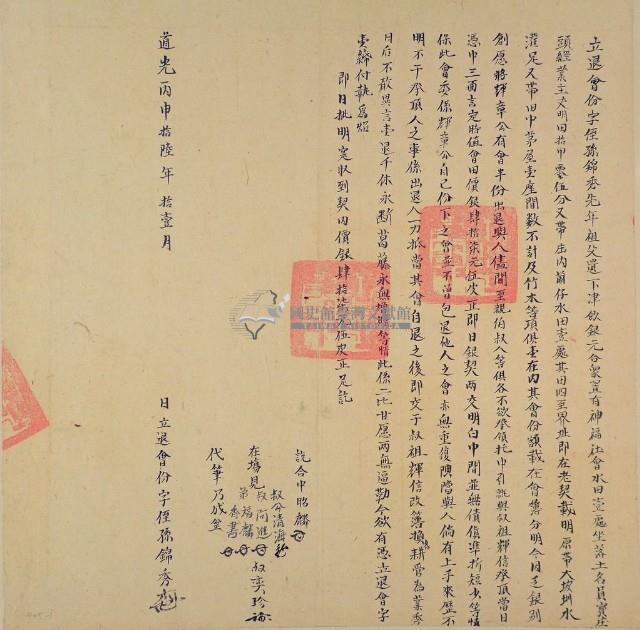 立退會份字侄孫錦秀先年祖父遺下津欲銀元合衆置有神福社會水田壹處坐落土名員寶庄
頭經業主丈明田拾甲零伍分又帶庄內蔔仔水田壹處其田四至界址即在老契載明原帶大坡圳水
灌足又帶田中茅屋壹座間數不計及竹木等項俱壹在內其會份額載在會簿分明今因乏銀別
創愿將輝章公有會半份出退與人儘問至親伯叔人等俱各不欲承領托中引就與叔祖輝信承頂當日
憑中三面言定時值會田價銀肆拾柒元伍皮正即日銀契兩交明白中間並無債債準折短少等情
保此會委係輝章公自己份下之會並不曾包退他人之會亦無重復典當與人倘有上手來歷不
明不干承頂人之事係出退人一力抵當其會自退之後即交于叔祖輝信改簿換耕管為業秀
日后不敢異言壹退千休永斷葛藤永無增贖等情此係二比甘愿兩無逼勒今欲有憑立退會字
壹紙付執為炤
即日批明寔收到契內價銀肆拾柒元伍皮正足訖
說合中昭麟
叔公清海
在場見叔阿進 叔奕珍
弟福麟
秀書
代筆乃成
道光丙申拾陸年拾壹月 日立退會份字侄孫錦秀
國史館臺灣文獻館
TAIWAN HISTORICA